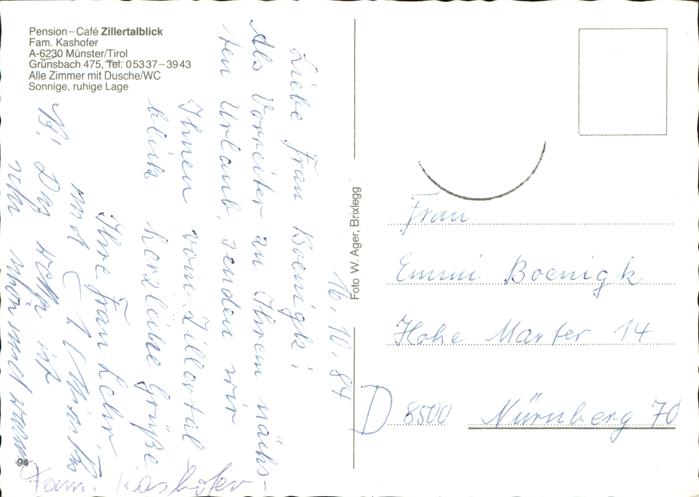 Pension–Café Zillertalblick
Fam. Kashofer
A-6230 Münster/Tirol
Grünsbach 475, Tel. 05337–3943
Alle Zimmer mit Dusche/WC
Sonnige, ruhige Lage
16.10.84
Liebe Frau Boenigk!
Als Vorreiter an Ihrem nächs-
ten Urlaub, senden wir
Ihnen vom Zillertal
blick herzliche Grüße
Ihre Frau Lehr
und
N! Das Wetter ist
sehr schön und warm
Fam. Kashofer
94
Foto W. Ager, Brixlegg
Frau
Emmi Boenigk
Hohe Marter 14
D 8500 Nürnberg 70